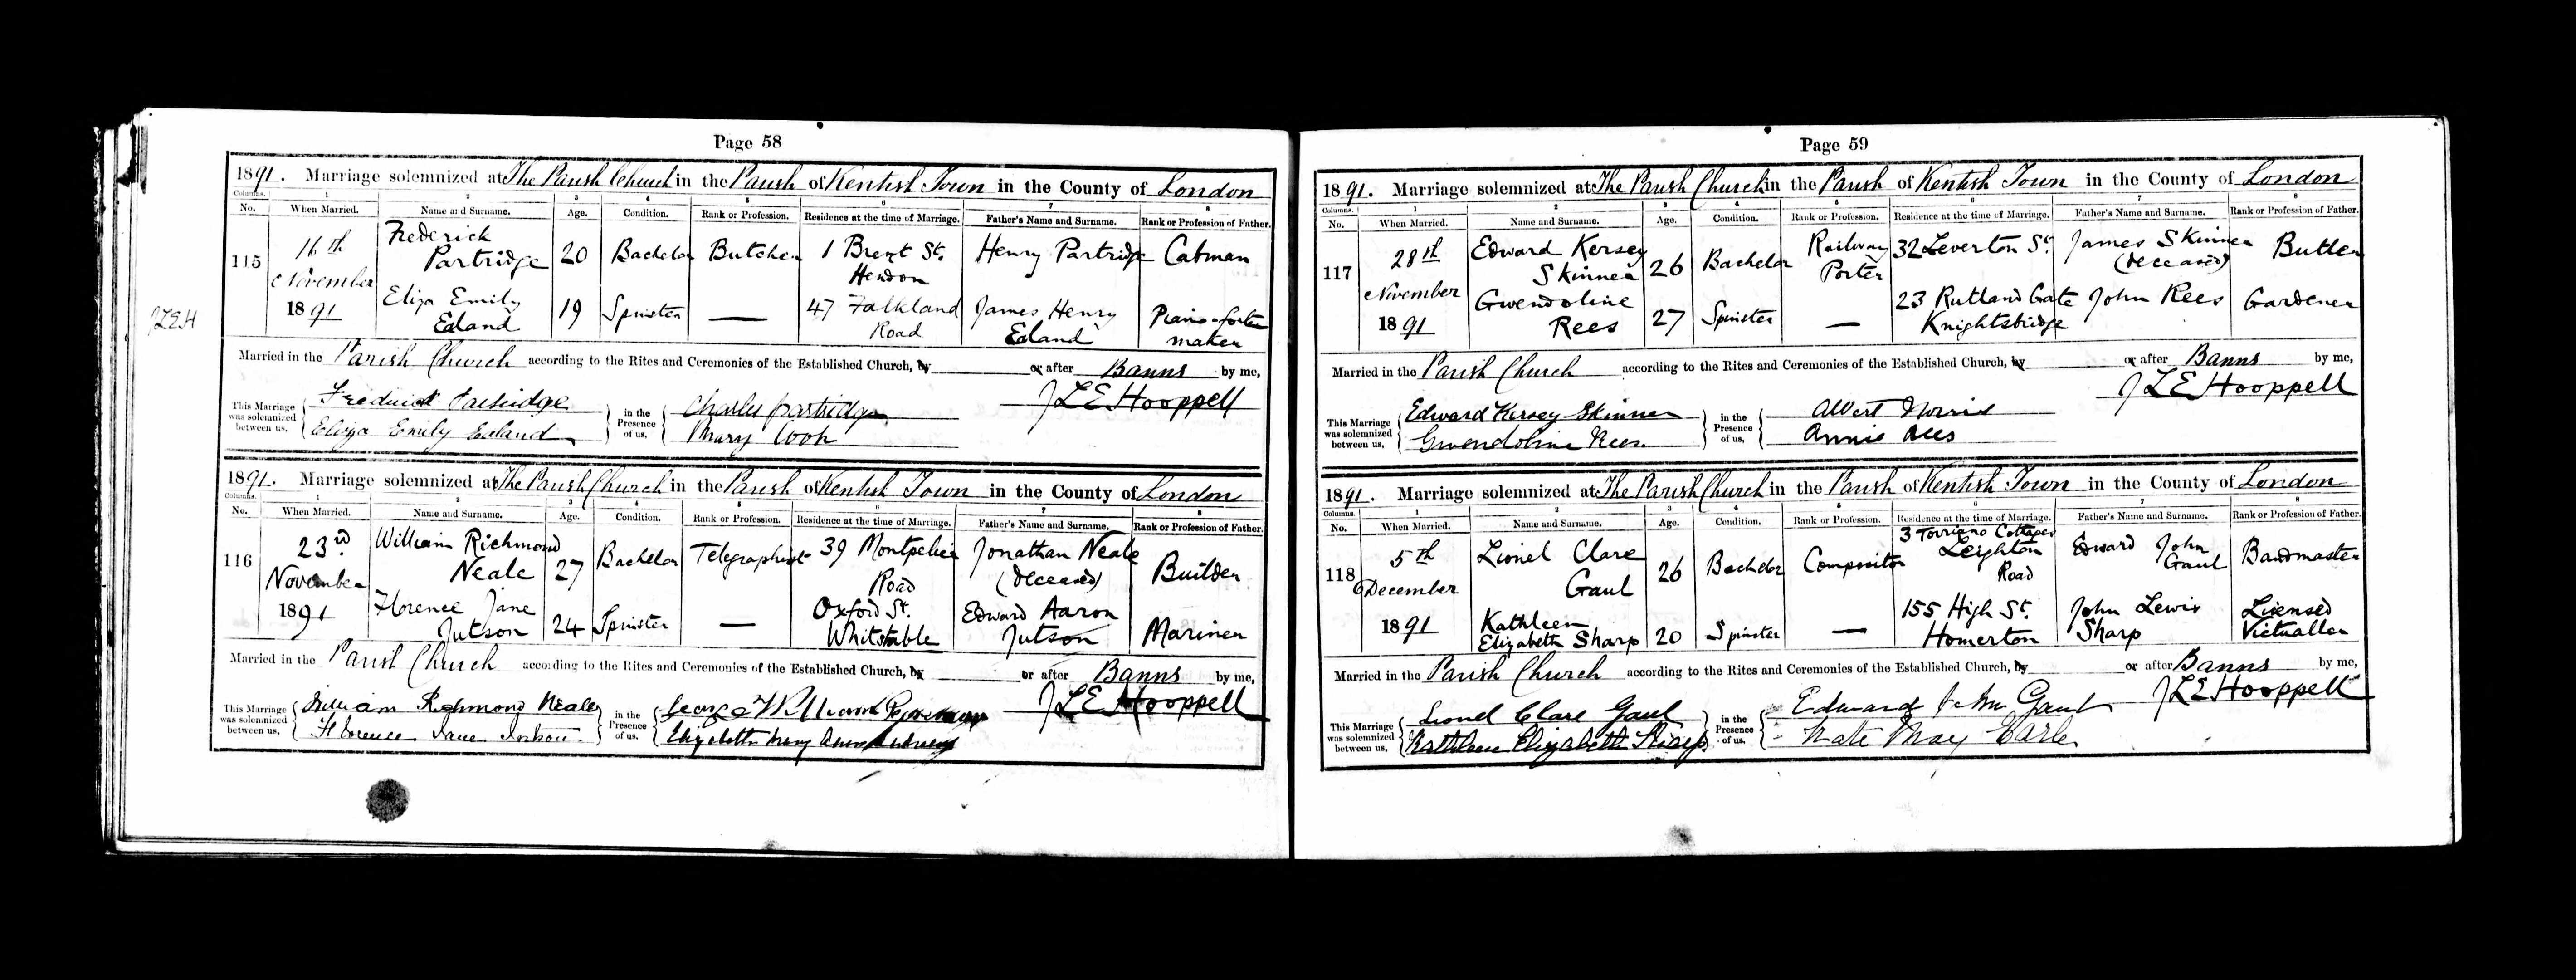 Page 58
1891. Marriage solemnized at The Parish Church in the Parish of Kentish Town in the County of London
Columns. 1 2 3 4 5 6 7 8
No. When Married. Name and Surname. Age. Condition. Rank or Profession. Residence at the time of Marriage. Father's Name and Surname. Rank or Profession of Father.
115 16th November 1891
Frederick Partridge 20 Bachelor Butcher 1 Brent St. Hendon Henry Partridge Cabman
Eliza Emily Ealand 19 Spinster — 47 Falkland Road James Henry Ealand Piano-forte maker
Married in the Parish Church according to the Rites and Ceremonies of the Established Church, by or after Banns by me,
J L E Hooppell
This Marriage was solemnized between us, Frederick Partridge Eliza Emily Ealand in the Presence of us, Charles Partridge Mary Cook
JLEH
1891. Marriage solemnized at The Parish Church in the Parish of Kentish Town in the County of London
Columns. 1 2 3 4 5 6 7 8
No. When Married. Name and Surname. Age. Condition. Rank or Profession. Residence at the time of Marriage. Father's Name and Surname. Rank or Profession of Father.
116 23rd November 1891
William Richmond Neale 27 Bachelor Telegraphist 39 Montpelier Road Jonathan Neale (deceased) Builder
Florence Jane Jutson 24 Spinster — Oxford St. Whitstable Edward Aaron Jutson Mariner
Married in the Parish Church according to the Rites and Ceremonies of the Established Church, by or after Banns by me,
J L E Hooppell
This Marriage was solemnized between us, William Richmond Neale Florence Jane Jutson in the Presence of us, George William Elizabeth Mary Anne
Page 59
1891. Marriage solemnized at The Parish Church in the Parish of Kentish Town in the County of London
Columns. 1 2 3 4 5 6 7 8
No. When Married. Name and Surname. Age. Condition. Rank or Profession. Residence at the time of Marriage. Father's Name and Surname. Rank or Profession of Father.
117 28th November 1891
Edward Kersey Skinner 26 Bachelor Railway Porter 32 Leverton St. James Skinner (deceased) Butler
Gwendoline Rees 27 Spinster — 23 Rutland Gate Knightsbridge John Rees Gardener
Married in the Parish Church according to the Rites and Ceremonies of the Established Church, by or after Banns by me,
J L E Hooppell
This Marriage was solemnized between us, Edward Kersey Skinner Gwendoline Rees in the Presence of us, Albert Norris Annie Rees
1891. Marriage solemnized at The Parish Church in the Parish of Kentish Town in the County of London
Columns. 1 2 3 4 5 6 7 8
No. When Married. Name and Surname. Age. Condition. Rank or Profession. Residence at the time of Marriage. Father's Name and Surname. Rank or Profession of Father.
118 5th December 1891
Lionel Clare Gaul 26 Bachelor Compositor 3 Torriano Cottages Leighton Road Edward John Gaul Bandmaster
Kathleen Elizabeth Sharp 20 Spinster — 155 High St. Homerton John Lewis Sharp Licensed Victualler
Married in the Parish Church according to the Rites and Ceremonies of the Established Church, by or after Banns by me,
J L E Hooppell
This Marriage was solemnized between us, Lionel Clare Gaul Kathleen Elizabeth Sharp in the Presence of us, Edward John Gaul Kate May Earle